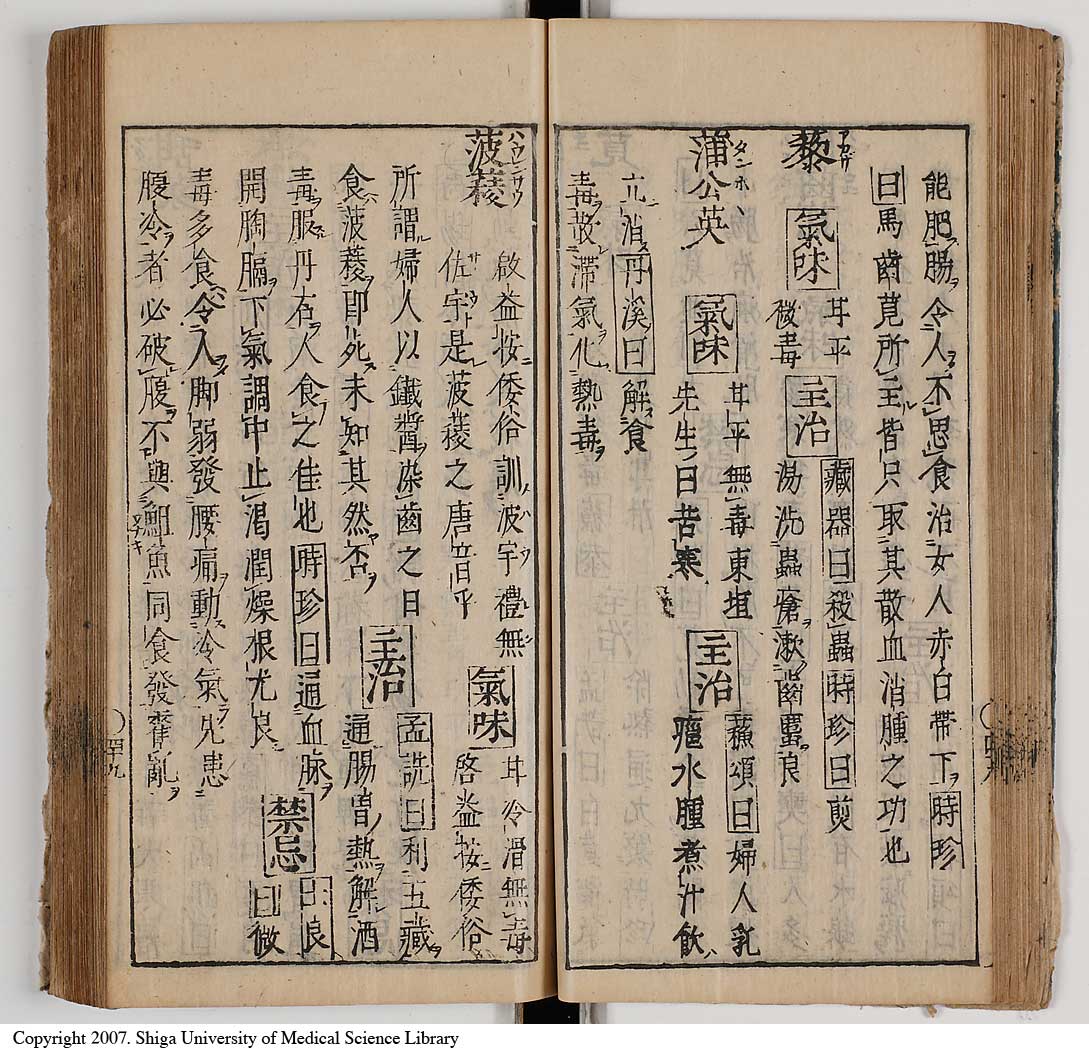 能肥腸令人不思食治女人赤白帶下時珍
曰馬齒莧所主皆只取其散血消腫之功也
アカザ
藜 氣味 甘平 主治 藏器曰殺蟲時珍曰煎
微毒 湯洗蟲瘡漱齒䘌良
タンホヽ
蒲公英 氣味 甘平無毒東垣 主治 蘓頌曰婦人乳
先生曰苦寒 癰水腫煮汁飲
立消丹溪曰解食
毒散滯氣化熱毒
ハウレンサウ
菠薐 啟益按倭俗訓波宇禮無 氣味 甘冷滑無毒
佐宇是菠薐之唐音乎 啓益按倭俗
所謂婦人以鐵醬染齒之日 主治 孟詵曰利五藏
食菠薐即死未知其然否 通腸胃熱解酒
毒服丹石人食之佳也時珍曰通血脉 禁忌 日良
開胸膈下氣調中止渴潤燥根尤良 曰微
毒多食令人脚弱發腰痛動冷氣先患
腹冷者必破腹不與䱇魚同食發霍亂
四十九
Copyright 2007. Shiga University of Medical Science Library